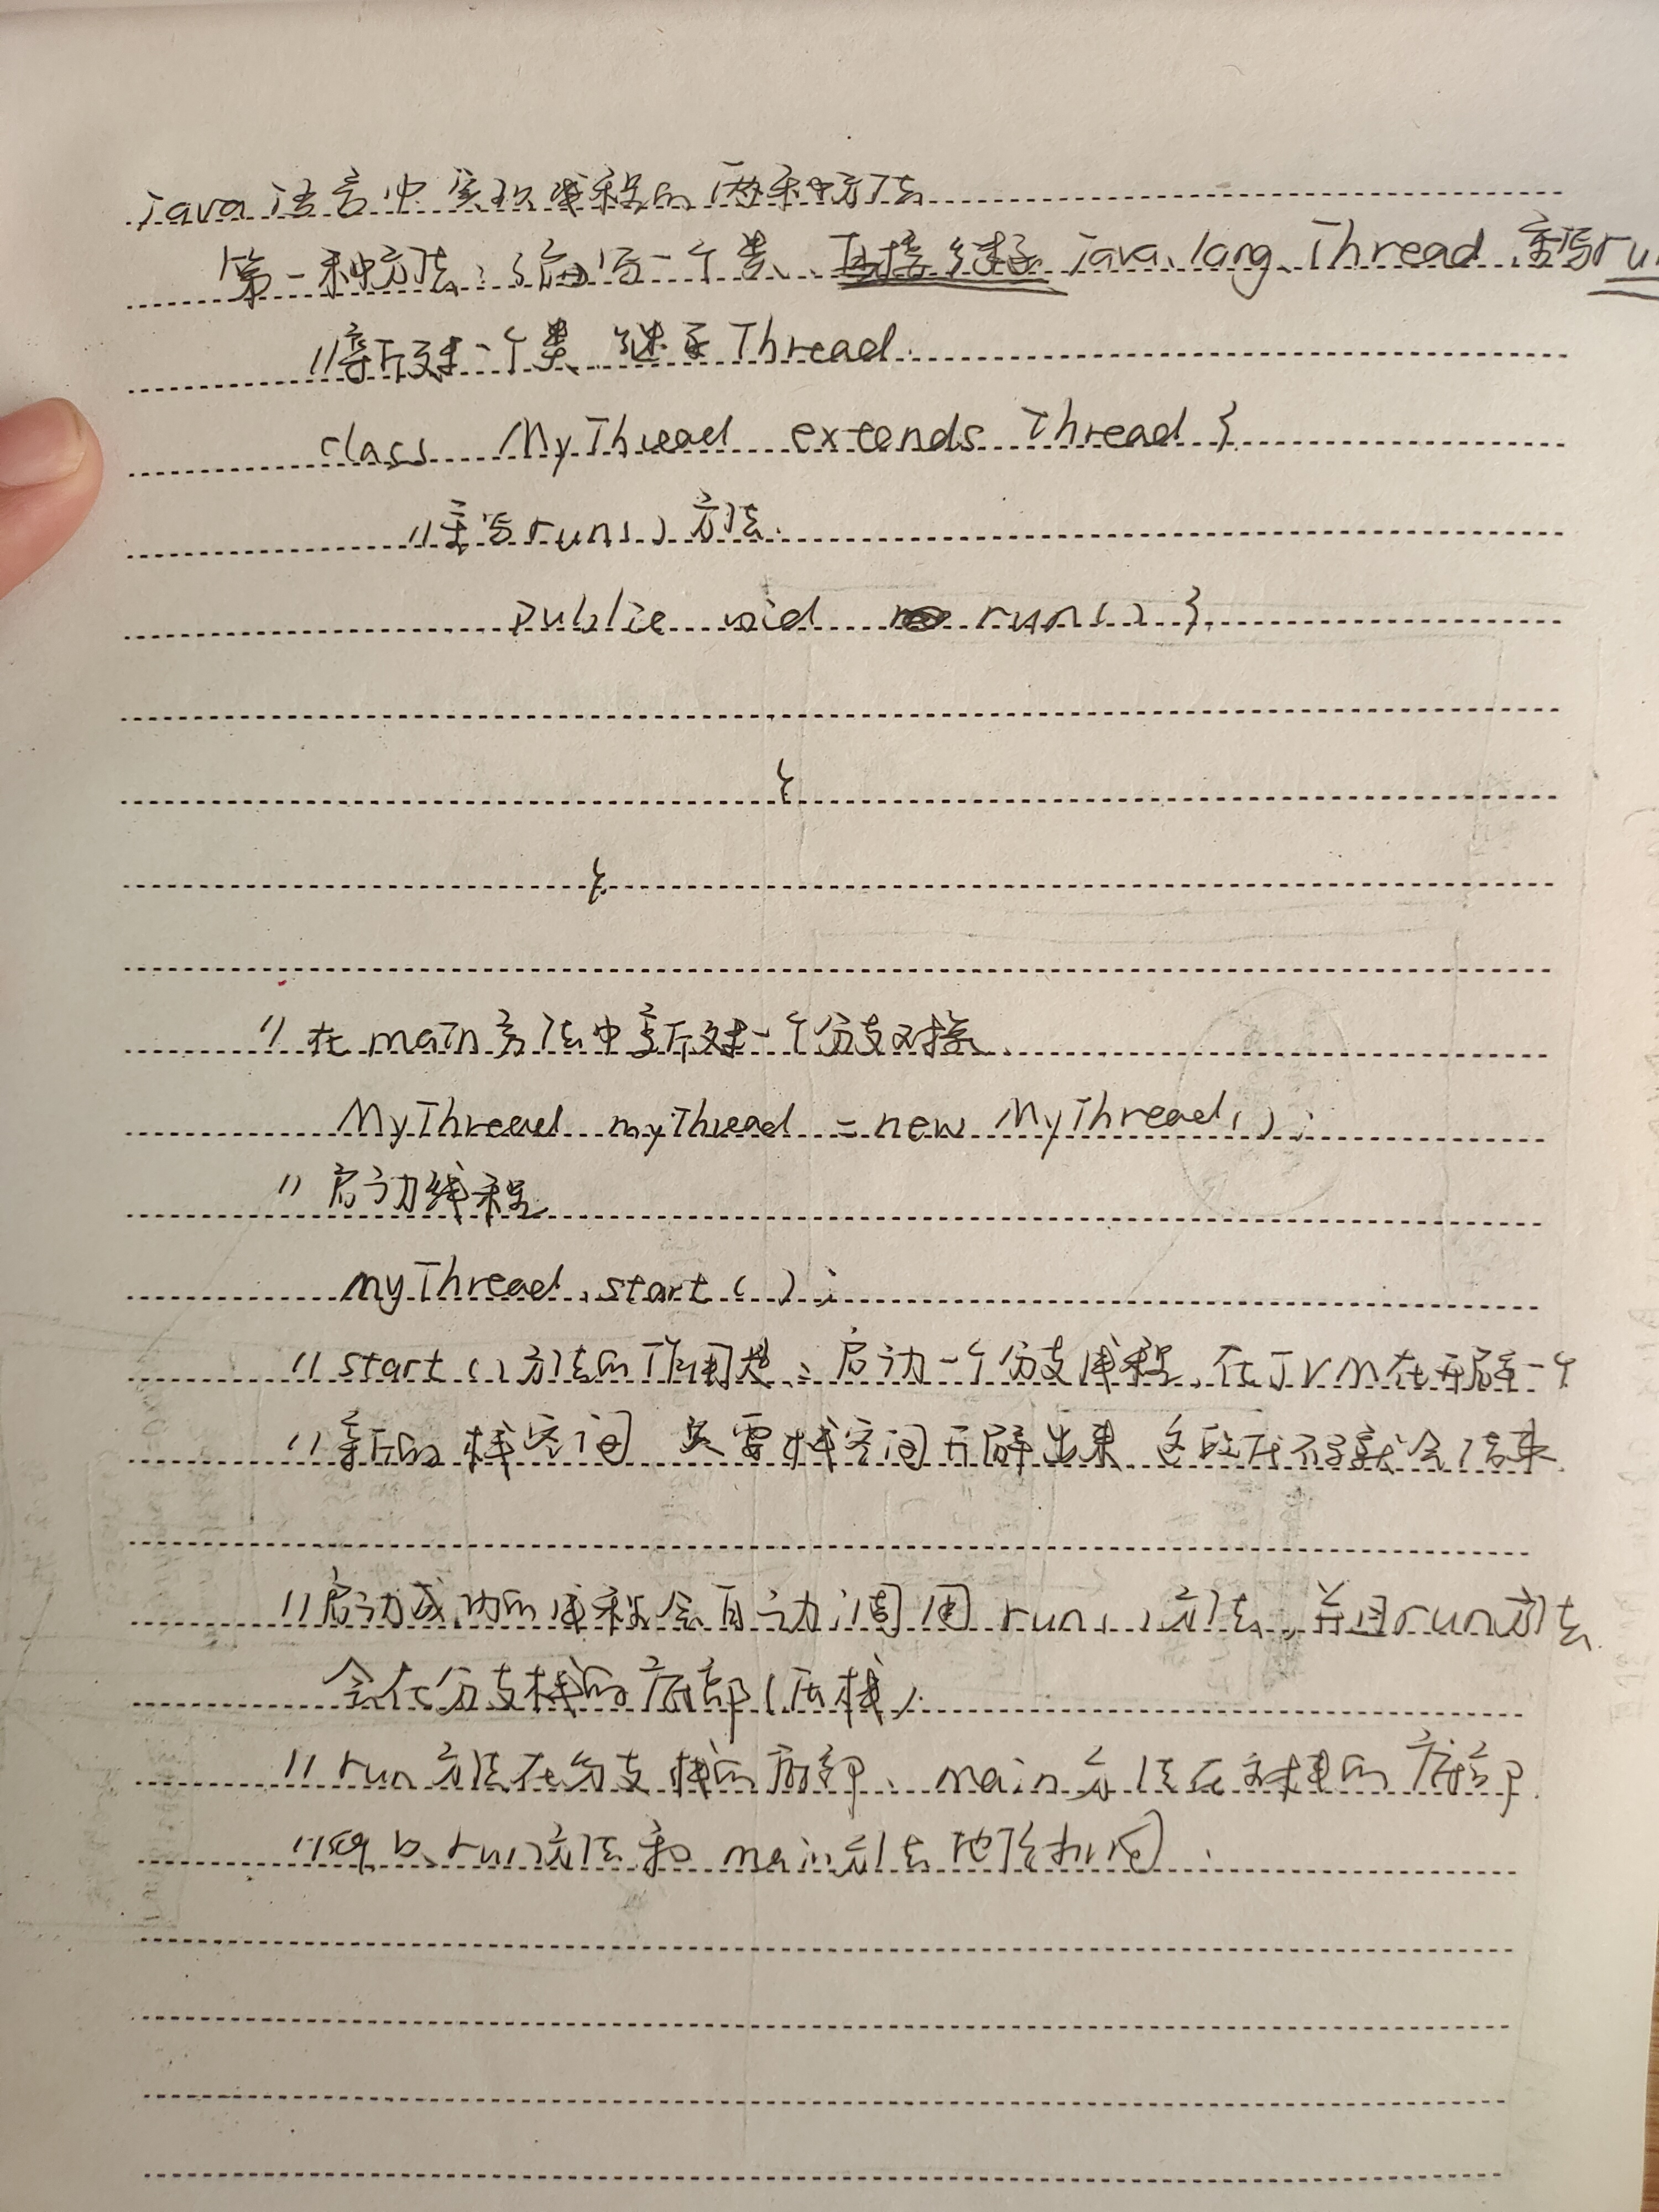 java语言中实现线程的两种方法
第一种方法：编写一个类、直接继承 java.lang.Thread 重写ru
//新建一个类 继承 Thread.
class MyThread extends Thread {
//重写run()方法.
public void run() {
}
}
// 在main方法中新建一个分支对接.
MyThread myThread = new MyThread();
// 启动线程
myThread.start();
// start()方法的作用是：启动一个分支线程，在JVM在开辟一个
//新的 栈空间 只要栈空间开辟出来 这段程序就会结束.
//启动成功的线程会自动调用run()方法，并且run方法
会在分支栈的底部(压栈).
// run方法在分支栈的底部、main方法在主栈的底部.
//run方法和main方法地位相同.